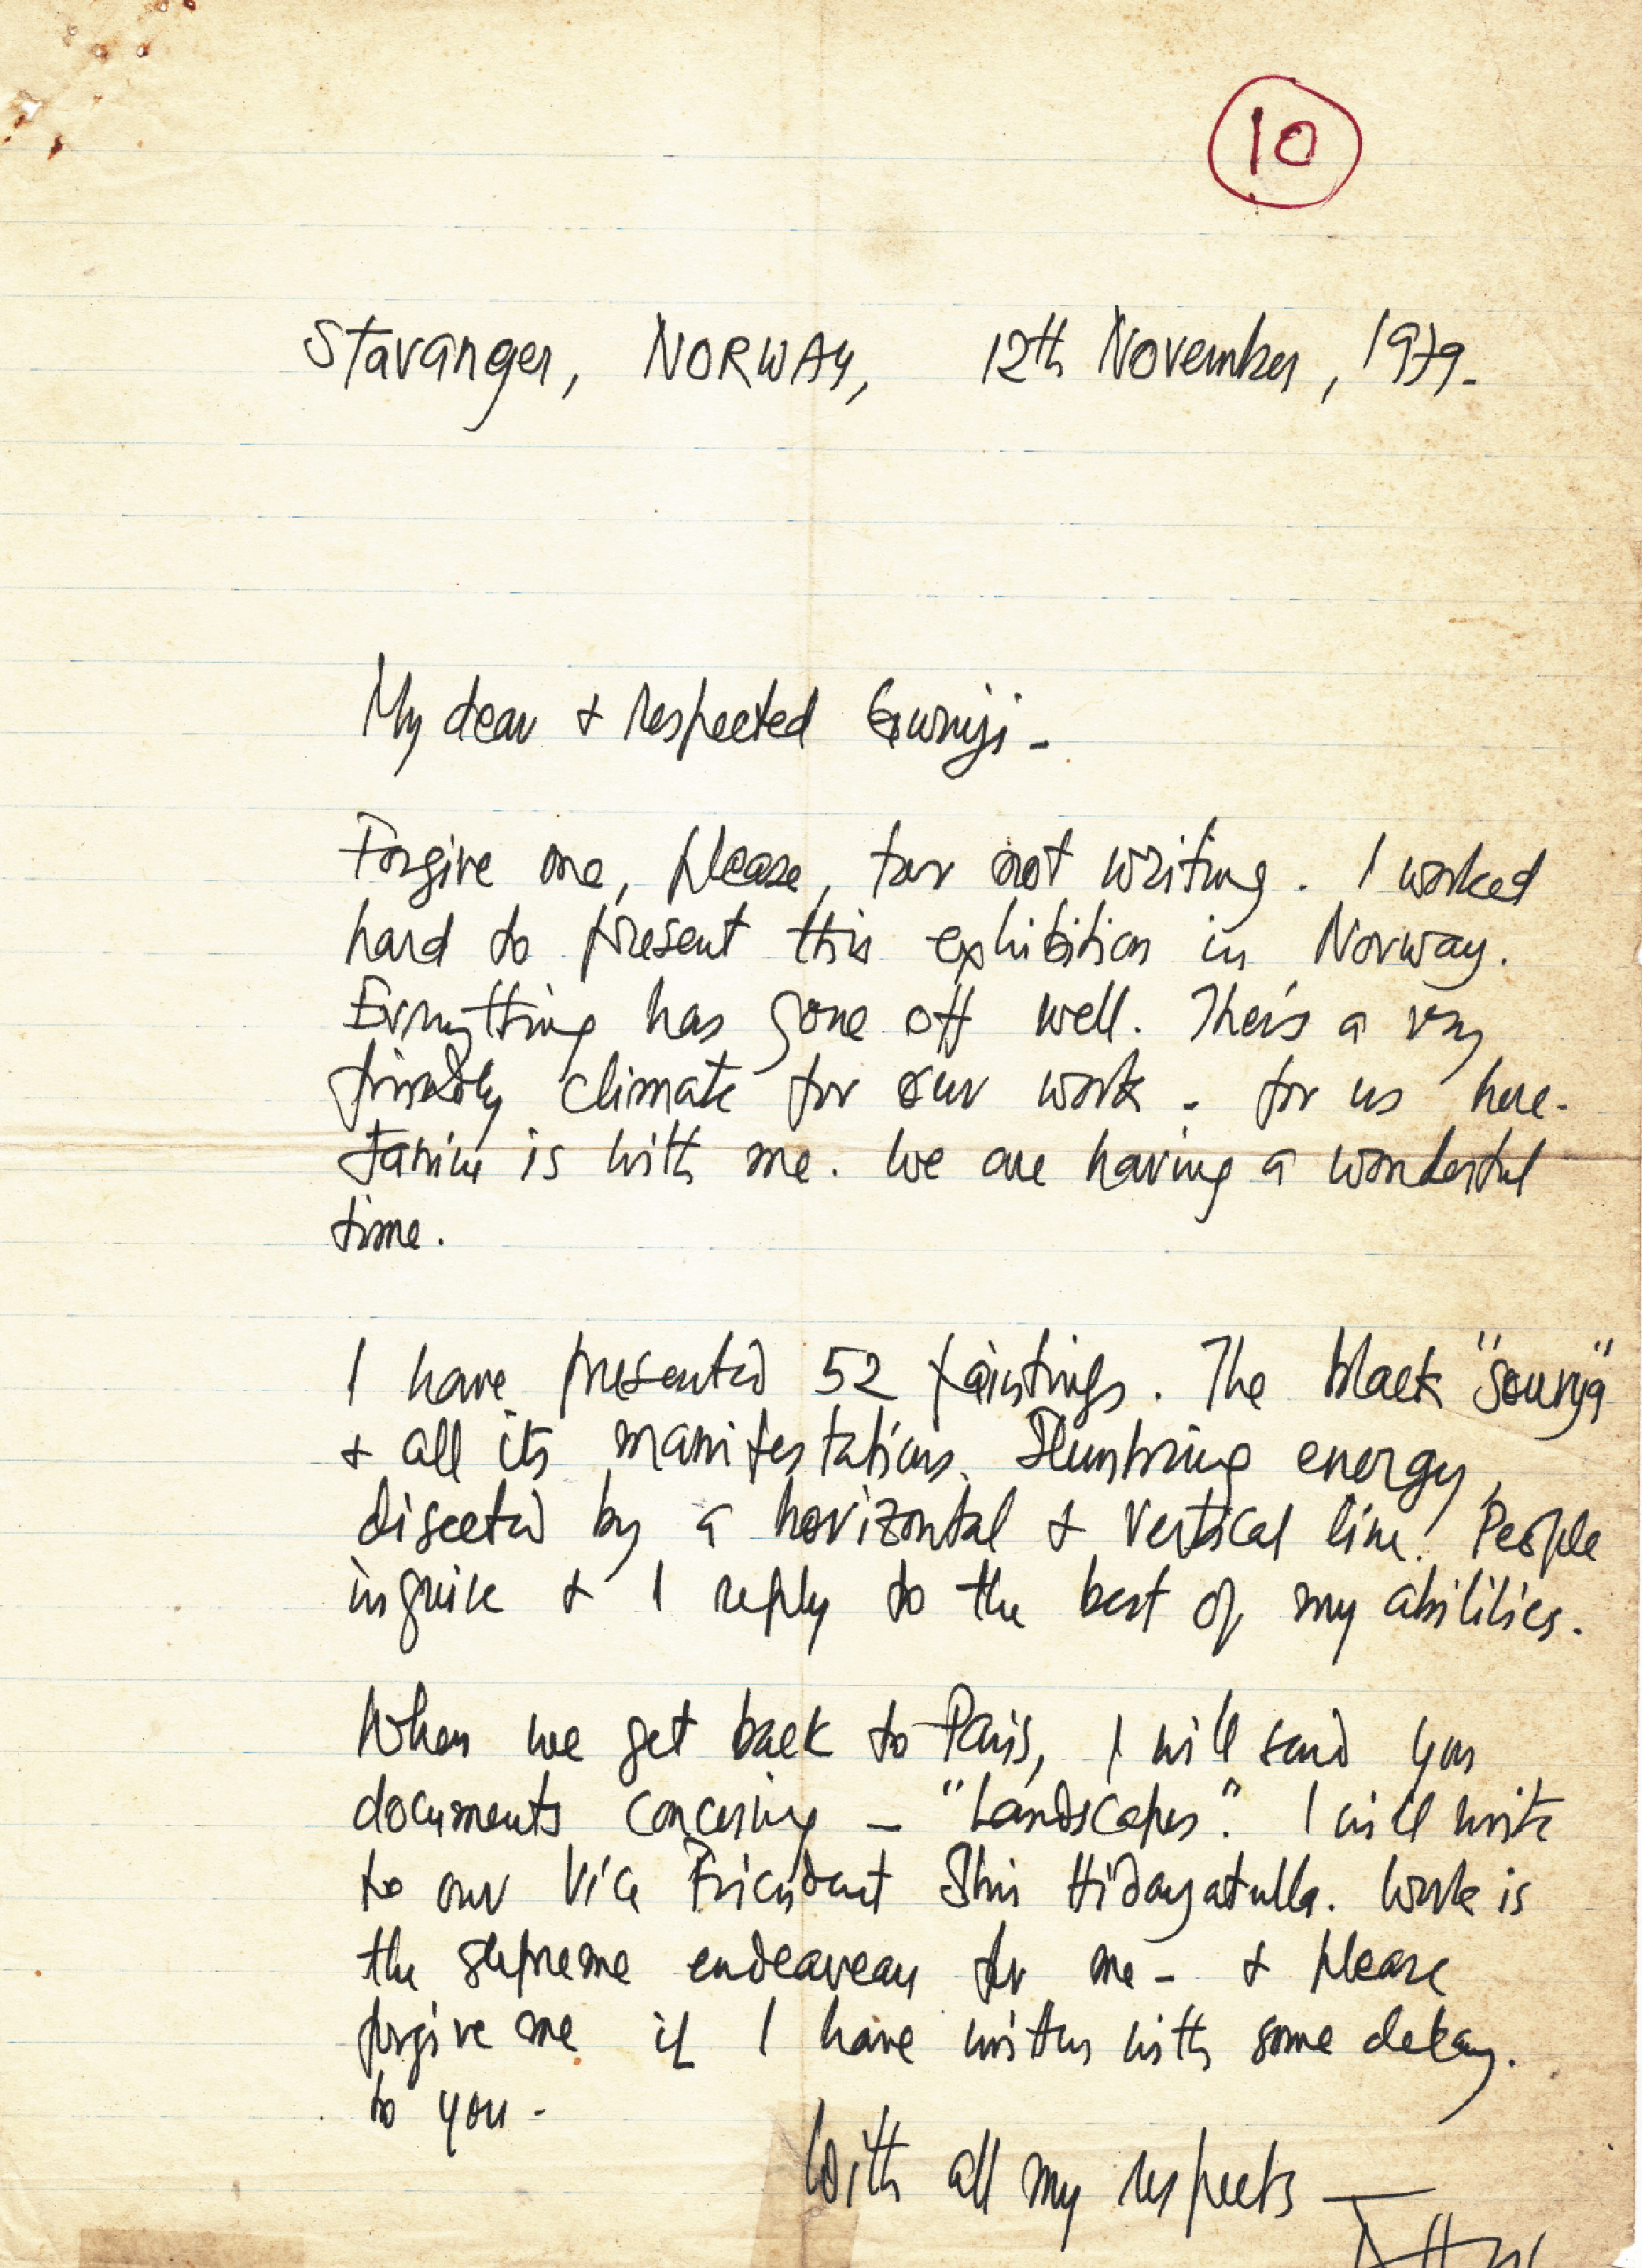 10
Stavanger, NORWAY, 12th November, 1979-
My dear & respected Guruji -
Forgive me, please, for not writing. I worked
hard to present this exhibition in Norway.
Everything has gone off well. There's a very
friendly climate for our work - for us here.
Janine is with me. We are having a wonderful
time.
I have presented 52 paintings. The black "Sourya"
& all its manifestations. Slumbring energy,
disected by a horizontal & vertical line. People
inquire & I reply to the best of my abilities.
When we get back to Paris, I will send you
documents concerning - "Landscapes". I will write
to our Vice President Shri Hidayatulla. Work is
the supreme endeaveau for me - & please
forgive me if I have written with some delay.
to you -
With all my respects -